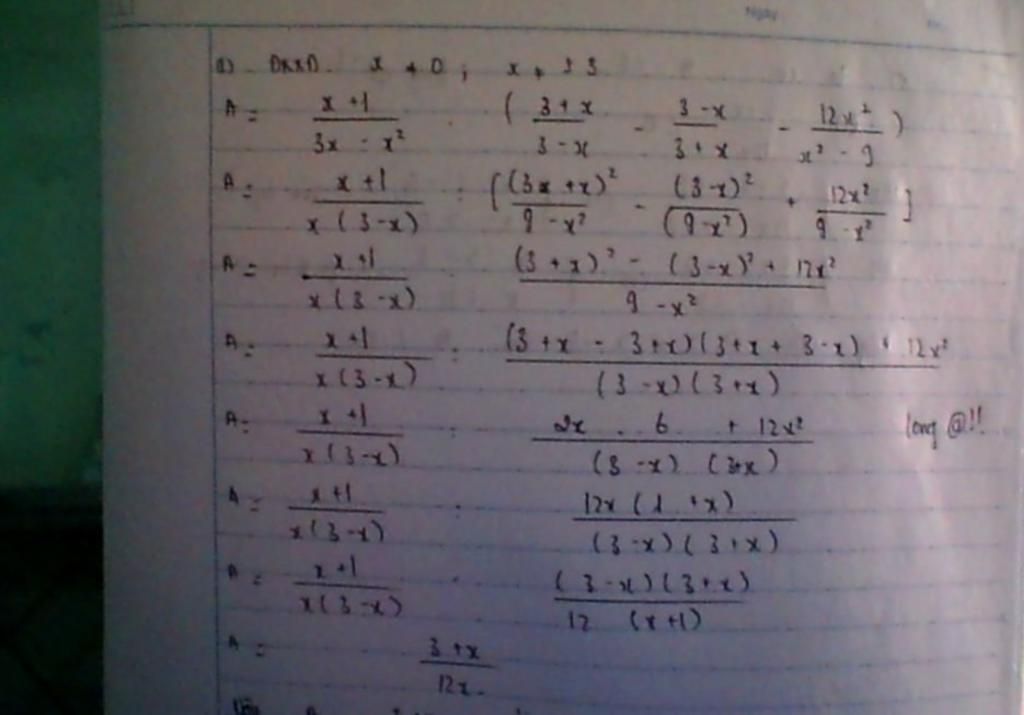 Ngày
a) ĐKXĐ. x ≠ 0 ; x ≠ ± 3
A = \frac{x+1}{3x - x²} : ( \frac{3+x}{3-x} - \frac{3-x}{3+x} - \frac{12x²}{x² - 9} )
A = \frac{x+1}{x(3-x)} : [ \frac{(3x+x)²}{9-x²} - \frac{(3-x)²}{(9-x²)} + \frac{12x²}{9-x²} ]
A = \frac{x+1}{x(3-x)} : \frac{(3+x)² - (3-x)² + 12x²}{9-x²}
A = \frac{x+1}{x(3-x)} : \frac{(3+x - 3+x)(3+x + 3-x) + 12x²}{(3-x)(3+x)}
A = \frac{x+1}{x(3-x)} : \frac{2x . 6 + 12x²}{(3-x)(3+x)} long @!!
A = \frac{x+1}{x(3-x)} : \frac{12x(1+x)}{(3-x)(3+x)}
A = \frac{x+1}{x(3-x)} . \frac{(3-x)(3+x)}{12 (x+1)}
A = \frac{3+x}{12x.}